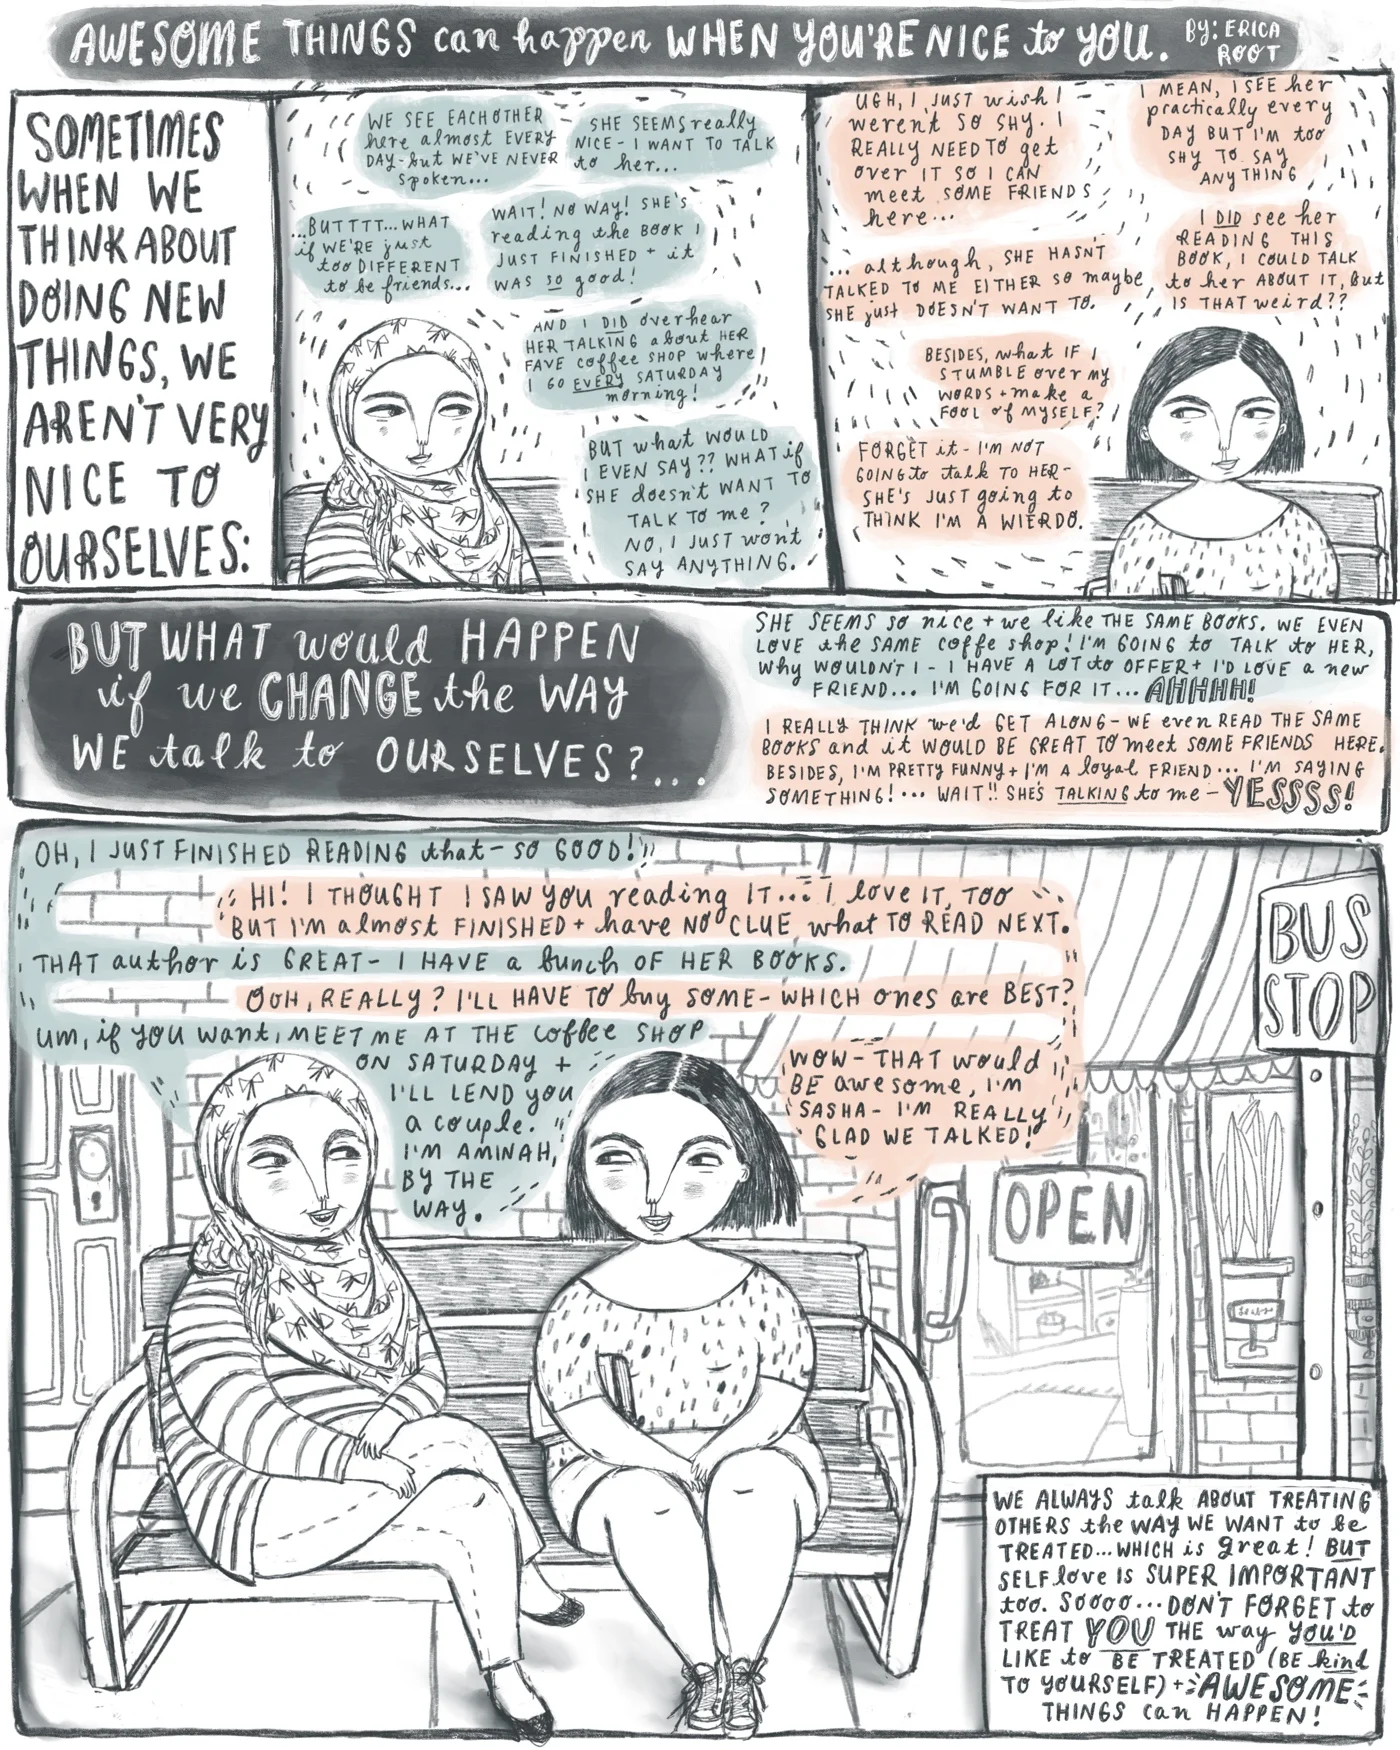 AWESOME THINGS can happen WHEN YOU'RE NICE to YOU.
BY: ERICA
ROOT
SOMETIMES
WHEN WE
THINK ABOUT
DOING NEW
THINGS, WE
AREN'T VERY
NICE TO
OURSELVES:
WE SEE EACHOTHER
here almost EVERY
DAY-but WE'VE NEVER
spoken...
SHE SEEMS really
NICE - I WANT TO TALK
to her...
...BUTTTT...WHAT
if WE'RE just
too DIFFERENT
to be friends...
WAIT! NO WAY! SHE'S
reading the BOOK I
JUST FINISHED + it
WAS so good!
AND I DID overhear
HER TALKING about HER
FAVE coffee SHOP where
I GO EVERY SATURDAY
morning!
BUT what WOULD
I EVEN SAY?? WHAT if
SHE doesn't WANT TO
TALK TO me?
NO, I JUST won't
SAY ANYTHING.
UGH, I JUST wish I
weren't SO SHY. I
REALLY NEED TO get
over IT SO I CAN
meet SOME FRIENDS
here...
I MEAN, I SEE her
practically every
DAY BUT I'm too
SHY TO SAY
ANYTHING
I DID see her
READING THIS
BOOK, I COULD TALK
to her ABOUT IT, but
IS THAT weird??
... although, SHE HASN'T
TALKED TO ME EITHER SO maybe
SHE just DOESN'T WANT TO.
BESIDES, what IF I
STUMBLE over my
WORDS + make a
FOOL of MYSELF?
FORGET it - I'M NOT
GOING to talk TO HER-
SHE'S JUST going to
THINK I'M A WIERDO.
BUT WHAT would HAPPEN
if we CHANGE the WAY
WE talk to OURSELVES?...
SHE SEEMS so nice + we like THE SAME BOOKS. WE EVEN
LOVE the SAME coffe shop! I'M GOING to TALK to HER,
why WOULDN'T I - I HAVE A LOT to OFFER + I'D LOVE a new
FRIEND... I'M GOING FOR IT... AHHHH!
I REALLY THINK we'd GET ALONG - WE even READ THE SAME
BOOKS and it WOULD BE GREAT TO meet SOME FRIENDS HERE.
BESIDES, I'M PRETTY FUNNY + I'M a loyal FRIEND... I'M SAYING
SOMETHING!... WAIT!! SHE'S TALKING to me - YESSSS!
OH, I JUST FINISHED READING that - SO GOOD!
HI! I THOUGHT I SAW YOU reading IT... I love IT, TOO
BUT I'M almost FINISHED + have NO CLUE what TO READ NEXT.
THAT author is GREAT - I HAVE a bunch OF HER BOOKS.
OOH, REALLY? I'LL HAVE TO buy SOME - WHICH ones are BEST?
um, if YOU want, MEET ME AT THE coffee SHOP
ON SATURDAY +
I'LL LEND you
a couple.
I'M AMINAH,
BY THE
WAY.
WOW - THAT would
BE awesome, I'M
SASHA - I'M REALLY
GLAD WE TALKED!
BUS
STOP
OPEN
WE ALWAYS talk ABOUT TREATING
OTHERS the WAY WE WANT to be
TREATED... WHICH is great! BUT
SELF love IS SUPER IMPORTANT
too. SOOOO... DON'T FORGET to
TREAT YOU THE way YOU'D
LIKE to BE TREATED (BE kind
TO YOURSELF) + AWESOME
THINGS can HAPPEN!